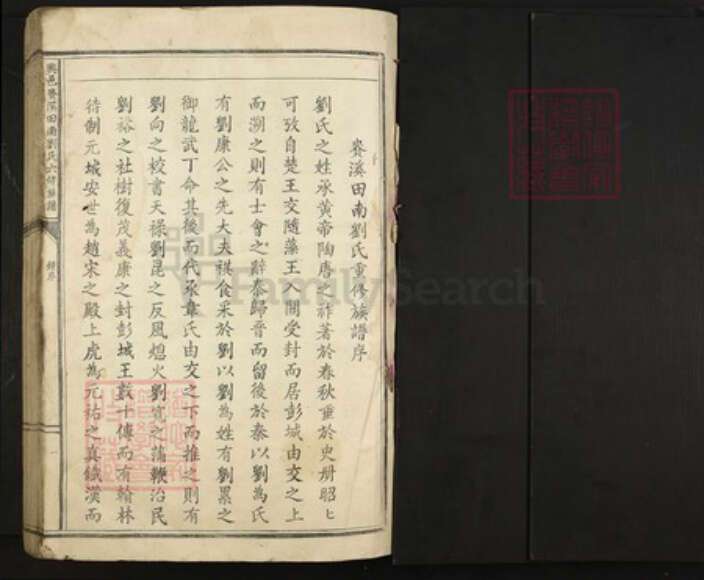 賽溪田南劉氏重修族譜序
劉氏之姓承黃帝陶唐之祚著於春秋重於史册昭乚
可攷自楚王交隨藻王入關受封而居彭城由交之上
而溯之則有士會之辭秦歸晉而留後於秦以劉為氏
有劉康公之先大夫祺食采於劉以劉為姓有劉累之
御龍武丁命其後而代承韋氏由交之下而推之則有
劉向之校書天祿劉昆之反風熄火劉寬之蒲鞭治民
劉裕之社樹復茂義康之封彭城王數十傳而有翰林
待制元城安世為趙宋之殿上虎為元祐之真鐵漢而
邑賽溪田南劉氏六修族譜
FamilySearch